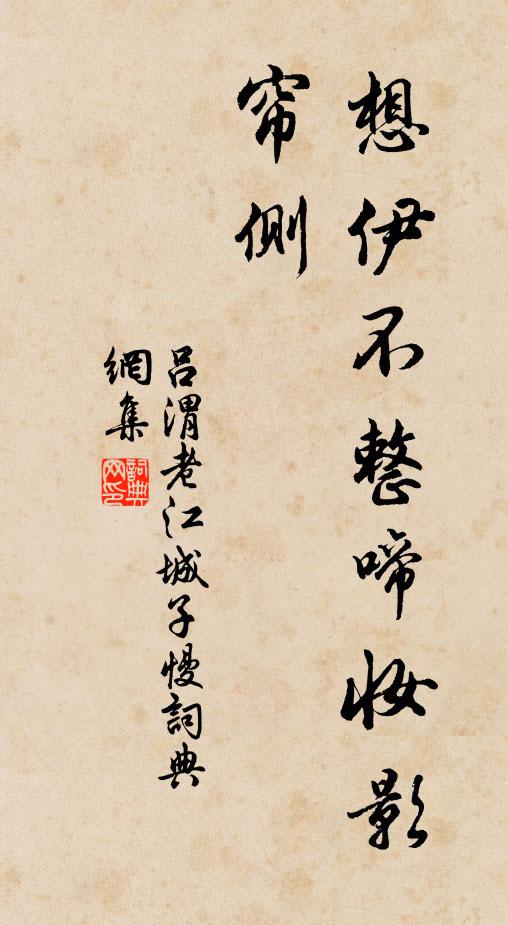 想伊不整啼妆影
帘侧
吕渭老江城子慢詞典
網集
詞典网印